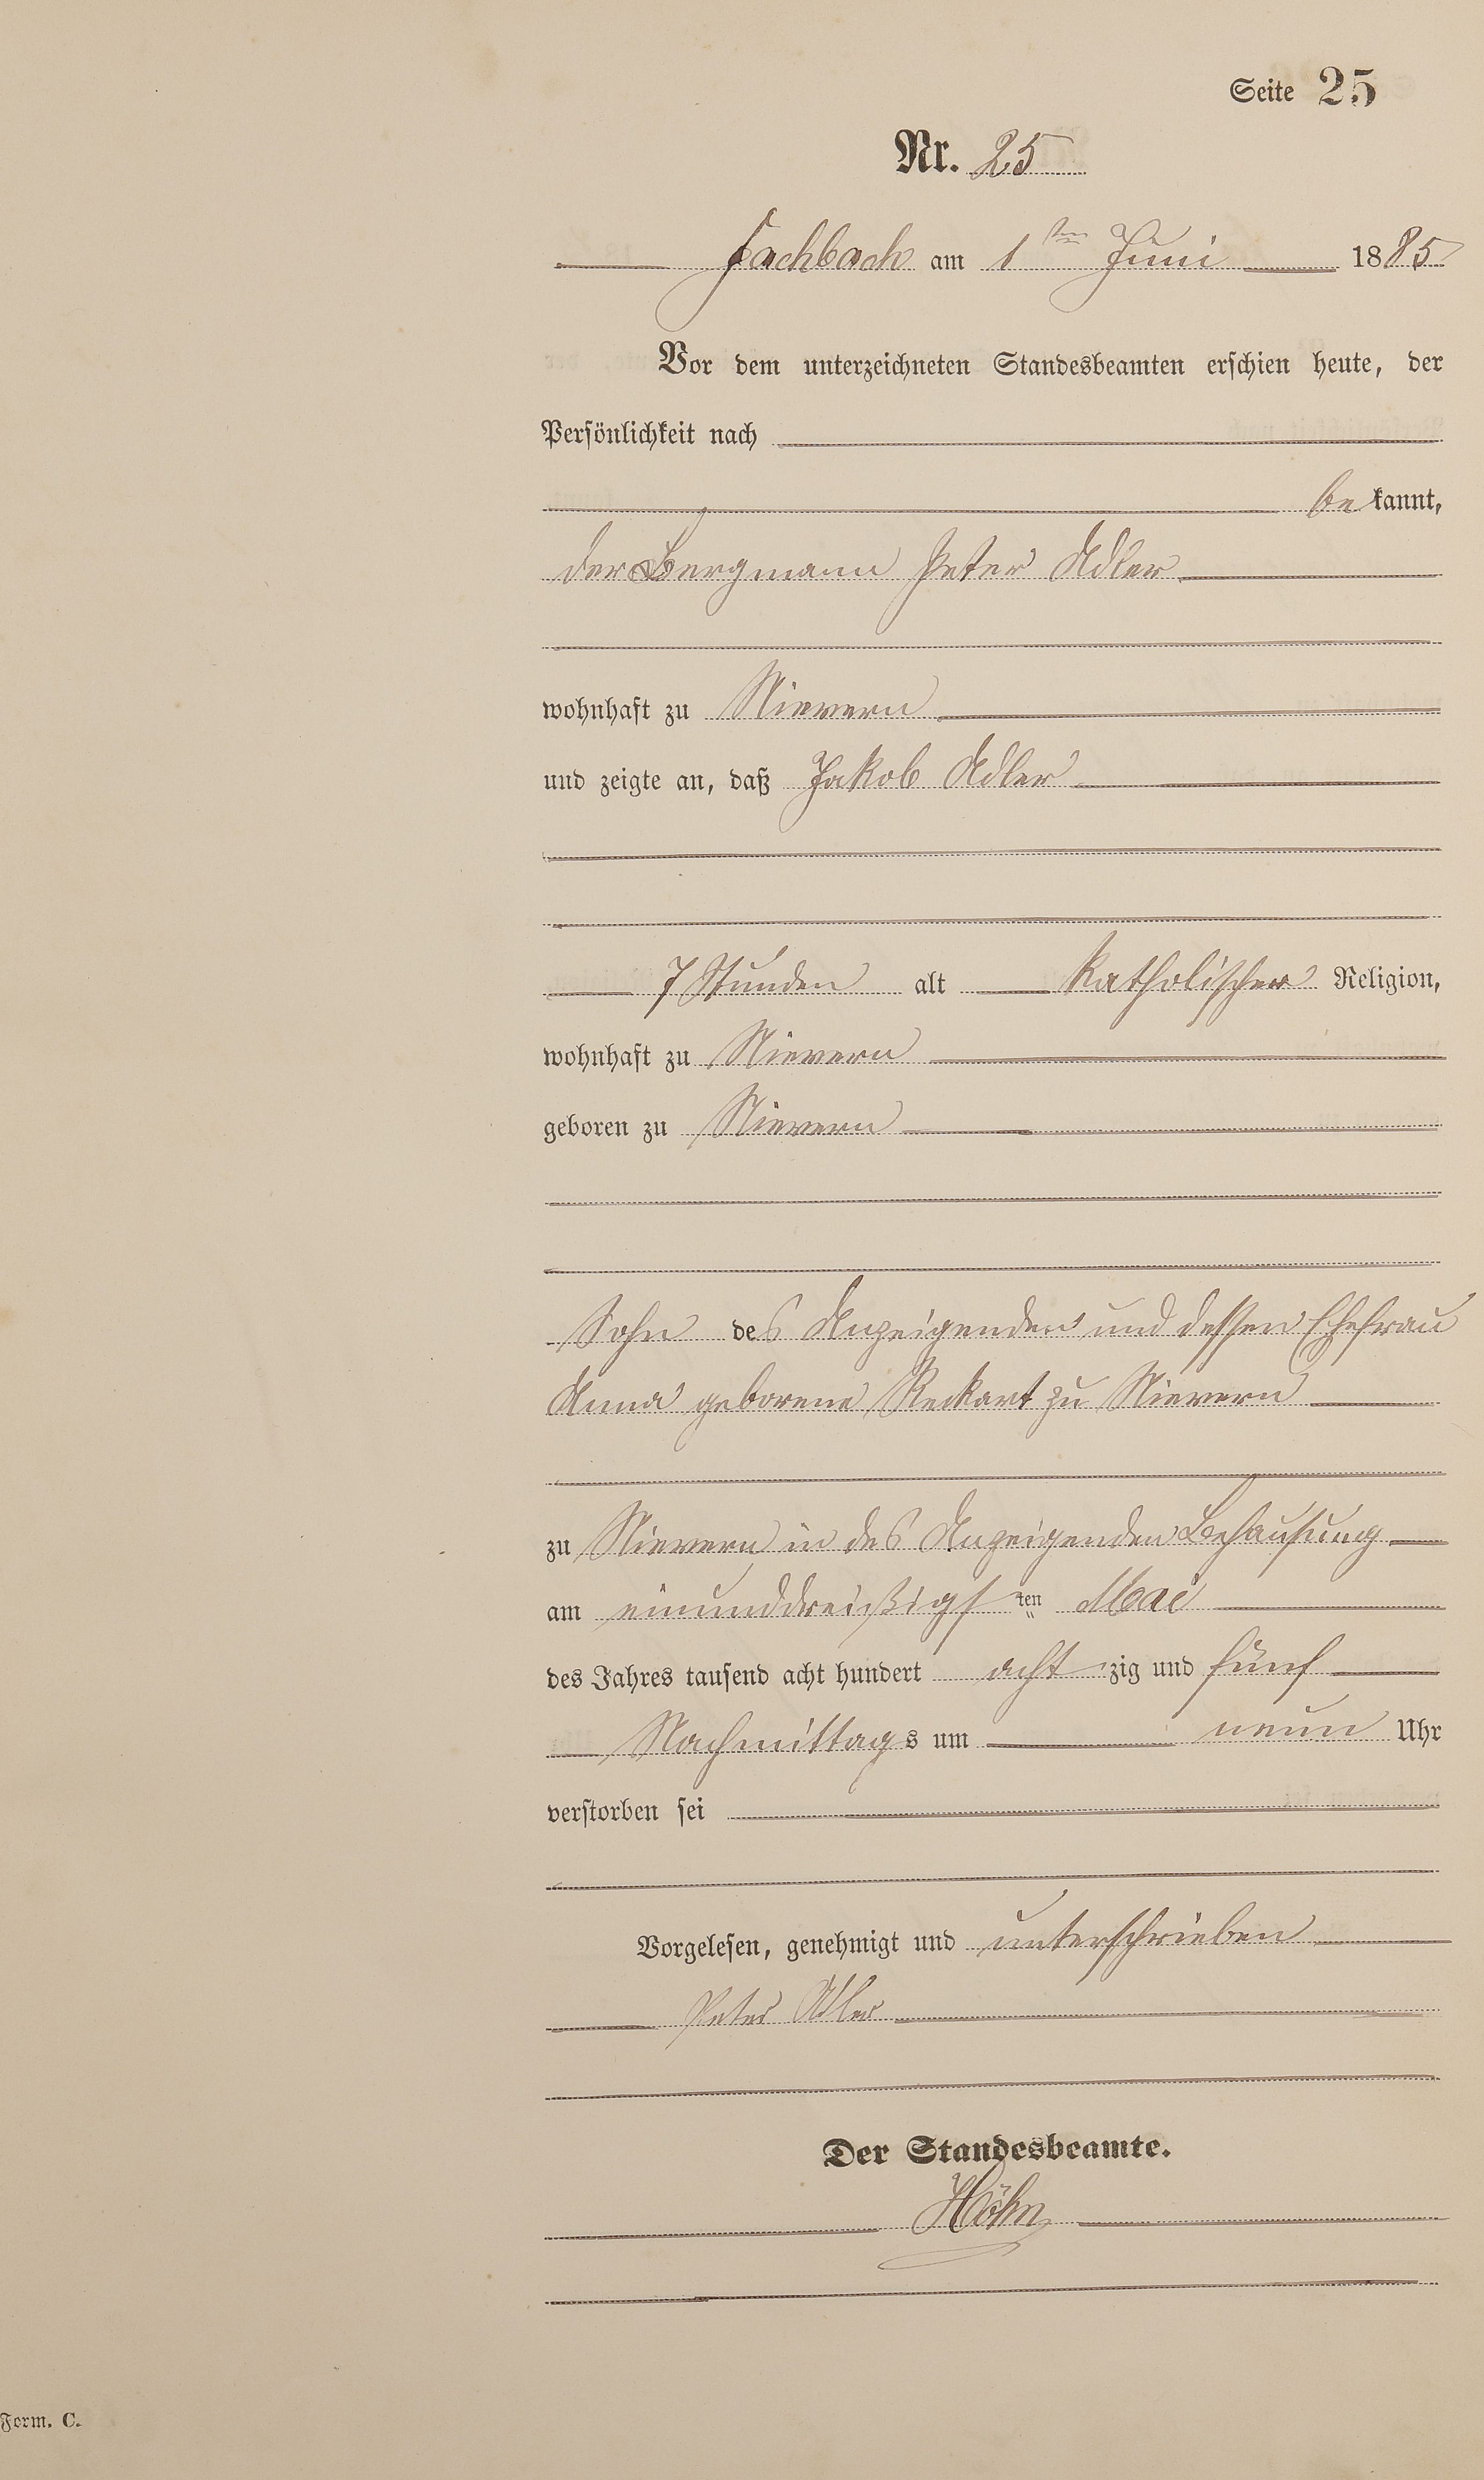 Seite 25
Nr. 25
Fachbach am 1ten Juni 1885
Vor dem unterzeichneten Standesbeamten erschien heute, der
Persönlichkeit nach
bekannt,
der Bergmann Peter Adler
wohnhaft zu Nievern
und zeigte an, daß Jakob Adler
7 Stunden alt katholischer Religion,
wohnhaft zu Nievern
geboren zu Nievern
Sohn des Anzeigenden und dessen Ehefrau
Anna geborene Reckart zu Nievern
zu Nievern in des Anzeigenden Behausung
am einunddreißigsten Mai
des Jahres tausend acht hundert achtzig und fünf
Nachmittags um neun Uhr
verstorben sei
Vorgelesen, genehmigt und unterschrieben
Peter Adler
Der Standesbeamte.
Höhn
Form. C.